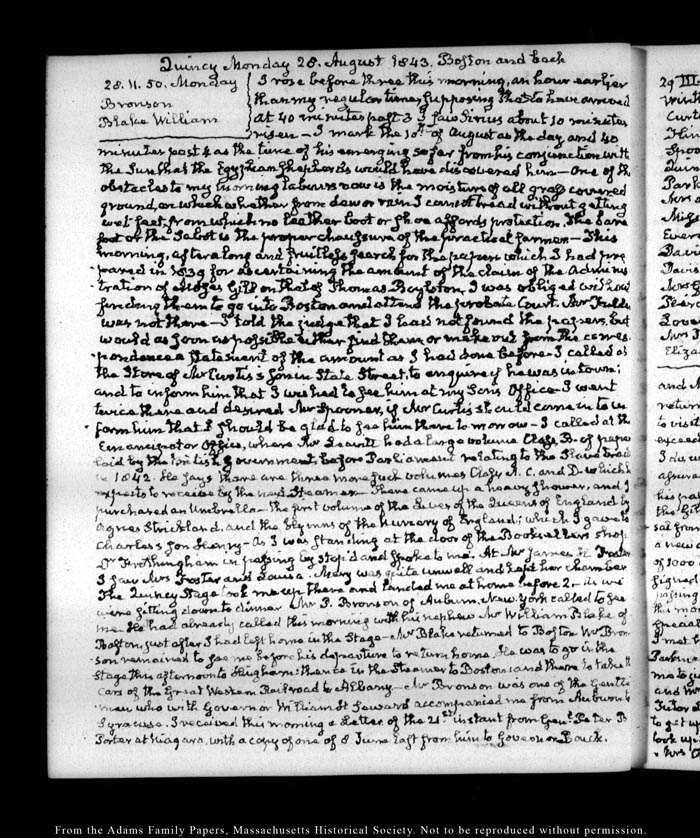 Quincy Monday 28. August 1843. Boston and back
28. II. 50. Monday
Bronson
Blake William
I rose before three this morning, an hour earlier
than my regular time, supposing that to have arrived
at 40 minutes past 3 I saw Sirius about 10 minutes
risen. — I mark the 10th of August as the day, and 40
minutes post 4 as the time of his emerging so far from his conjunction with
the Sun that the Egyptian Shepherds would have discovered him — One of the
obstacles to my morning labours now is the moisture of all grass covered
ground, on which whether from dew or rain I cannot tread without getting
wet feet, from which no leather boot or shoe affords protection. The bare
foot or the Sabot is the proper chaussure of the practical farmer — This
morning, after a long and fruitless search for the papers which I had pre
pared in 1839 for ascertaining the amount of the claim of the Adminis
tration of Moses Gill on that of Thomas Boylston, I was obliged without
finding them to go into Boston and attend the probate Court. Mr
was not there — I told the judge that I had not found the papers, but
would as soon as possible either find them or make out from the corres
pondence a statement of the amount as I had done before. I called at
the Store of Mr Curtis's son in State Street, to enquire if he was in town;
and to inform him that I wished to see him at my Sons Office. I went
twice there and desired Mr Spooner, if Mr Curtis should come in to in
form him that I should be glad to see him there to morrow — I called at the
Emancipator Office, where Mr Leavitt had a large volume Class, B. of papers
laid by the British Government, before Parliament relating to the Slave trade
in 1842. He says there are three more such volumes Class A. C. and D. which he
expects to receive by the next Steamer — There came up a heavy shower, and I
purchased an Umbrella — The first volume of the Lives of the Queens of England by
Agnes Strickland, and the Rhymns of the Nursery of England; which I gave to
Charles's Son Henry — As I was standing at the door of the Booksellers shop
Dr Frothingham in passing by stop'd and spoke to me. At Mr James H. Foster
I saw Mrs Foster and Louisa. Mary was quite unwell and kept her chamber
The Quincy Stage took me up there and landed me at home before 2. As we
were sitting down to dinner Mr P. Bronson of Auburn, New York called to see
me. He had already called this morning with his nephew Mr William Blake of
Boston, just after I had left home in the Stage — Mr Blake returned to Boston. Mr Bron
son remained to see me before his departure to return home. He was to go in the
Stage this afternoon to Hingham; thence in the Steamer to Boston; and there to take the
Cars of the Great Western Railroad to Albany — Mr Bronson was one of the Gentle
men who with Governor William H Seward accompanied me from Auburn to
Syracuse. I received this morning a Letter of the 21st instant from Genl. Peter B
Porter at Niagara, with a copy of one of 8 June last from him to Governor Bouck.
From the Adams Family Papers, Massachusetts Historical Society. Not to be reproduced without permission.